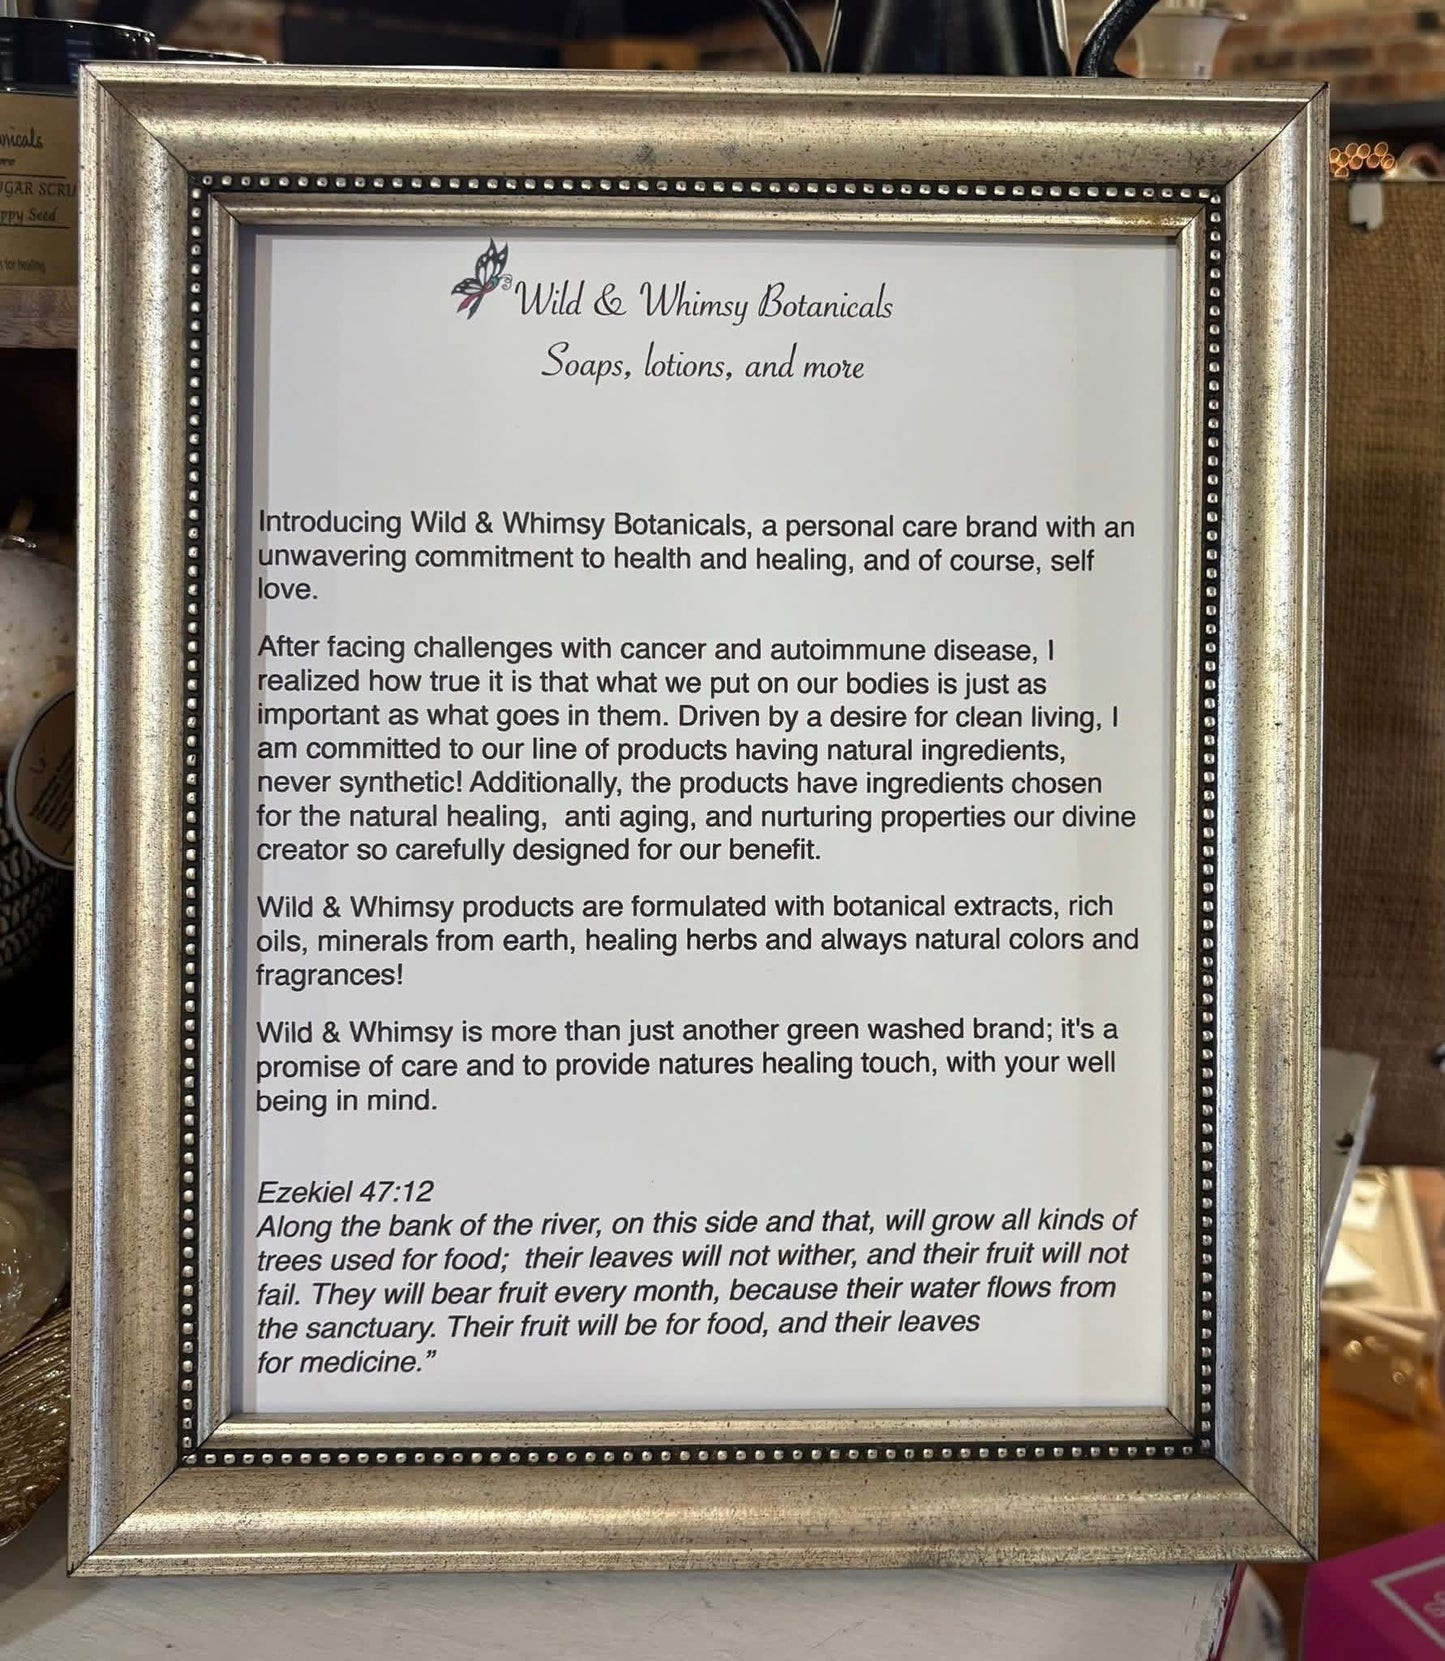 Wild & Whimsy Botanicals
Soaps, lotions, and more
Introducing Wild & Whimsy Botanicals, a personal care brand with an
unwavering commitment to health and healing, and of course, self
love.
After facing challenges with cancer and autoimmune disease, I
realized how true it is that what we put on our bodies is just as
important as what goes in them. Driven by a desire for clean living, I
am committed to our line of products having natural ingredients,
never synthetic! Additionally, the products have ingredients chosen
for the natural healing,  anti aging, and nurturing properties our divine
creator so carefully designed for our benefit.
Wild & Whimsy products are formulated with botanical extracts, rich
oils, minerals from earth, healing herbs and always natural colors and
fragrances!
Wild & Whimsy is more than just another green washed brand; it's a
promise of care and to provide natures healing touch, with your well
being in mind.
Ezekiel 47:12
Along the bank of the river, on this side and that, will grow all kinds of
trees used for food;  their leaves will not wither, and their fruit will not
fail. They will bear fruit every month, because their water flows from
the sanctuary. Their fruit will be for food, and their leaves
for medicine.”
nicals
GAR SCRU
ppy Seed
for healing